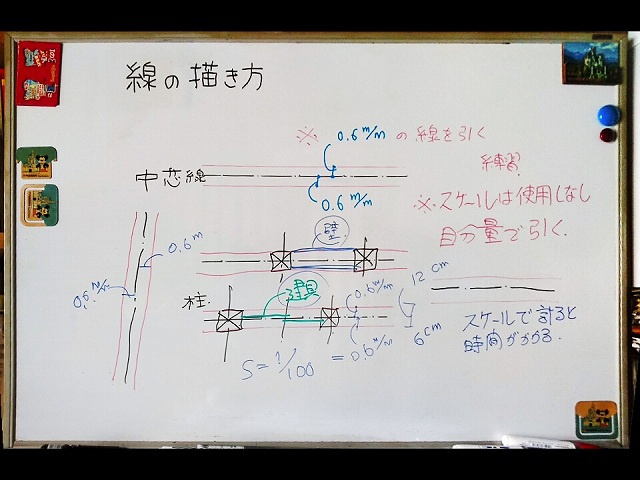 線の描き方
※ 0.6m/mの線を引く
練習
中恋線
0.6m/m
※スケールは使用しなし
自分量で引く.
0.6m
0.6m/m
壁
柱.
建具
0.6m/m
12cm
6cm
S=1/100 =0.6m/m
スケールで計ると
時間がかかる.